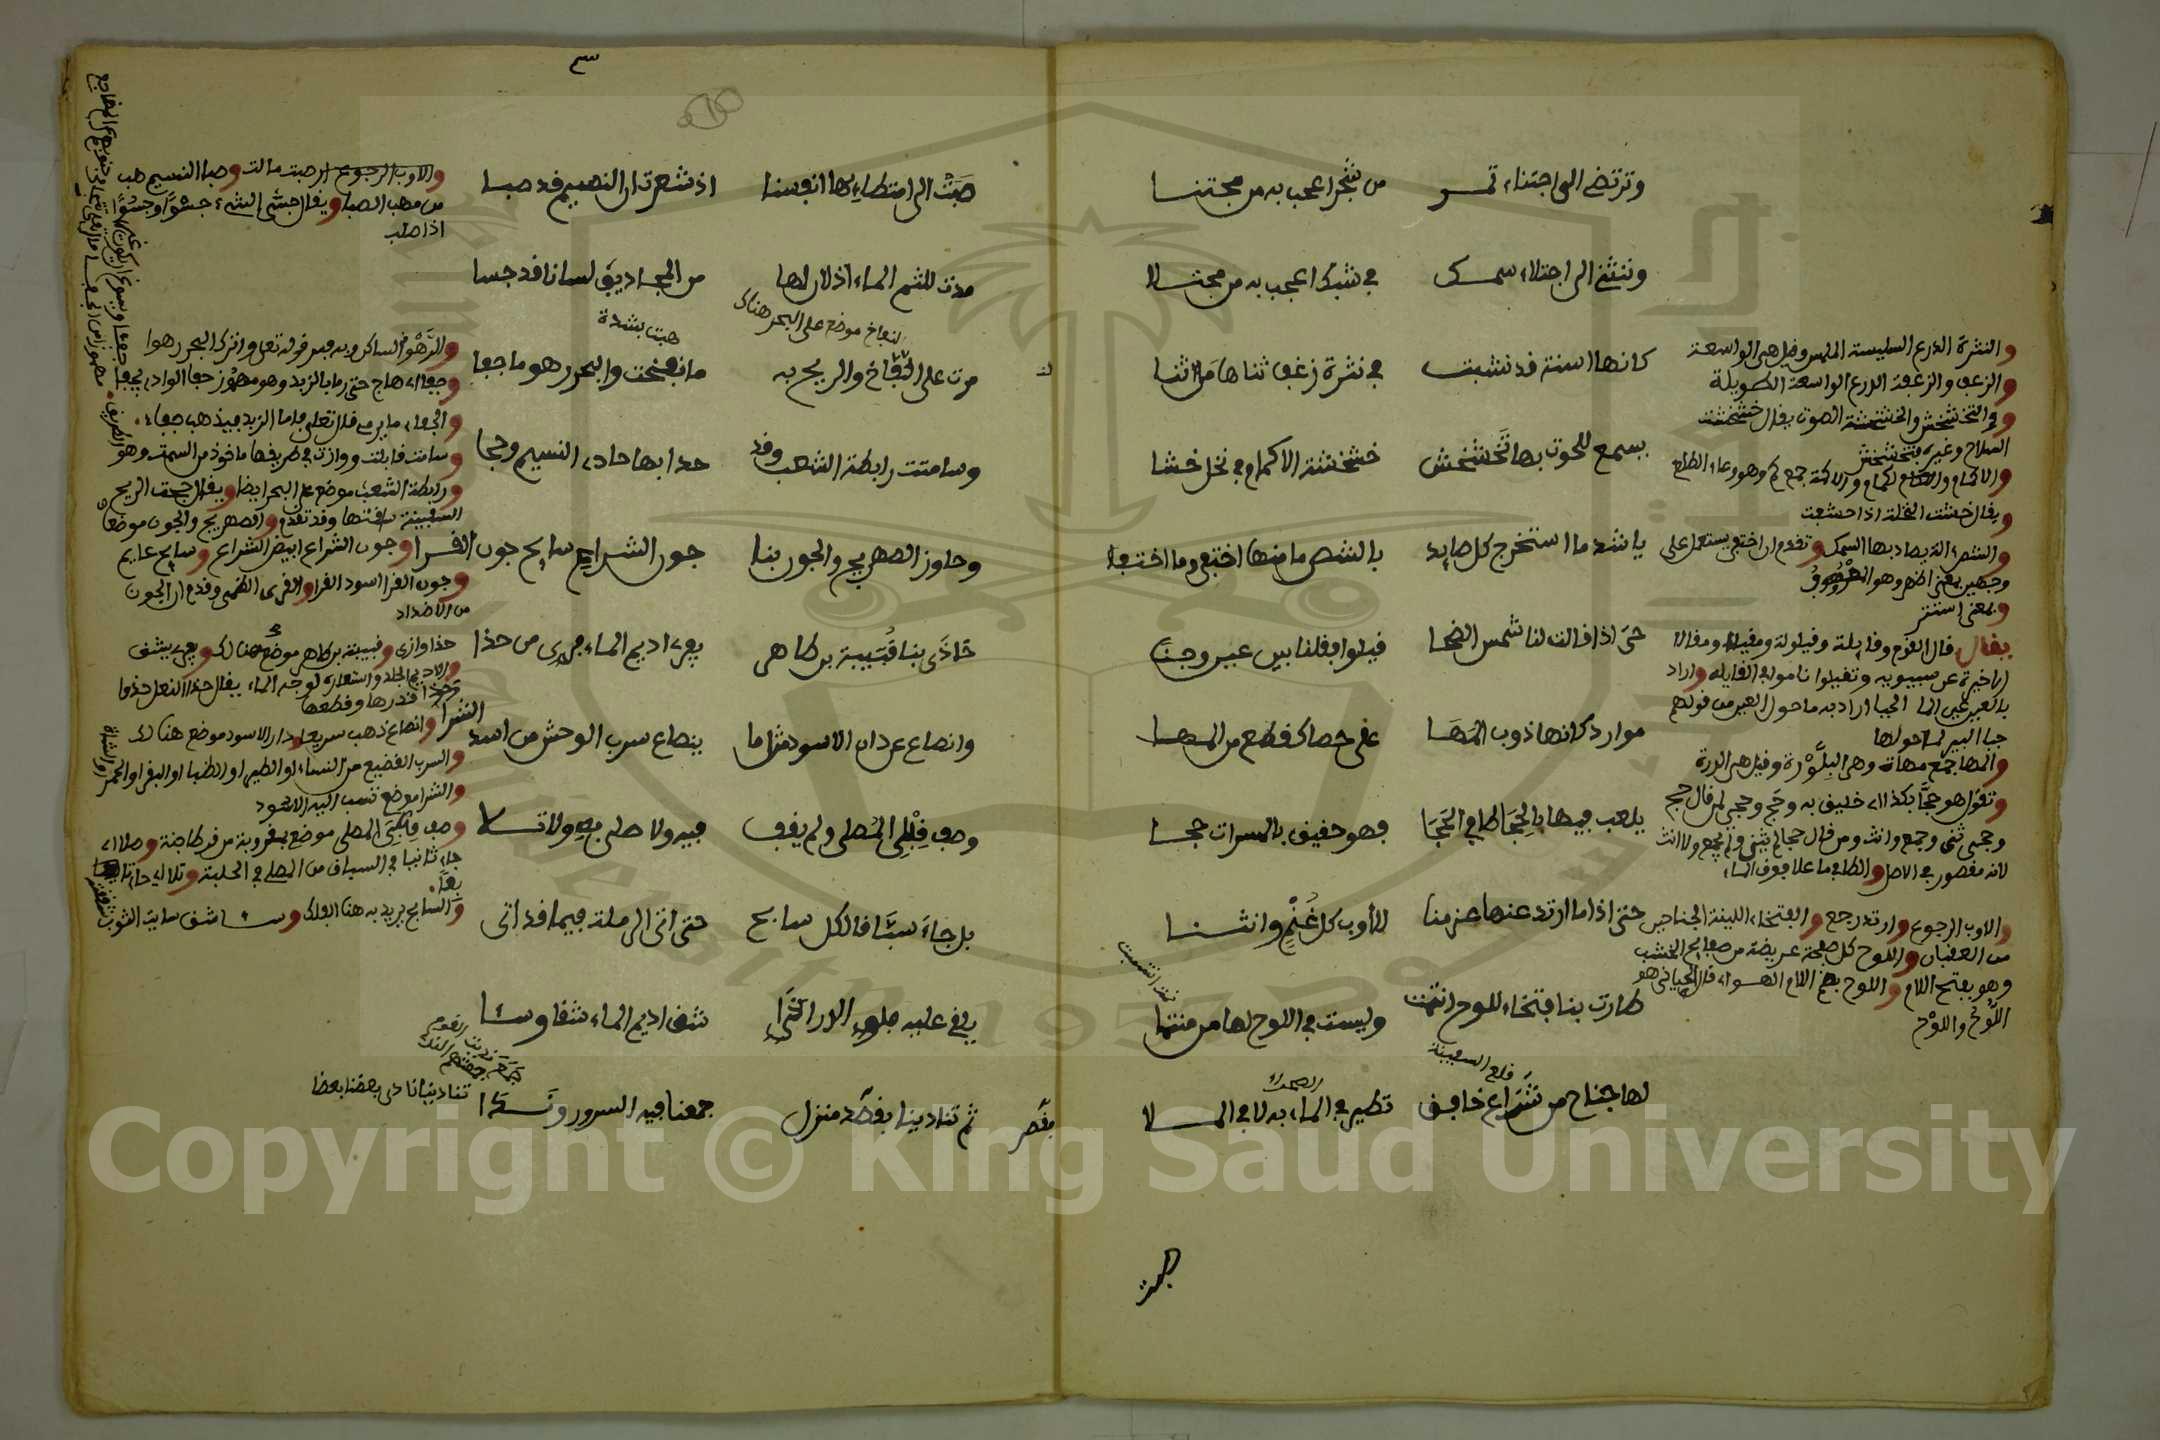 وترتضي الى اجتناء تمر من شجر اعجب به من مجتنا
وننثني الى اجتلاء سمك في شبك اعجب به من مجتلا
كانها اسنة قد نشبت في نثرة زغف ثناها من ثنا
يسمع للحوت بها تخشخش خشخشة الاكمام في نخل خشا
يا شد ما استخرج كل صايد بالشص ما منها اختفى وما اختفا
حتى اذا قالت لنا شمس الضحا قيلوا فقلنا بين عين وجبا
موارد كانها ذوب المها على حصا كقطع من المها
يلعب فيها بالحجا طافي الحجا فهو حقيق بالمسرات حجا
حتى اذا ما ارتد عنها عزمنا للأوب كل غنم وانثنا
طارت بنا فتخاء للوح انتمت وليست في اللوح لها من منتما
لها جناح من شراع خافق تطير في الماء به لا في الملا
والنثرة الدرع السليسة الملمس وقيل هي الواسعة
والزغف والزغفة الدرع الواسعة الطويلة
والتخشخش والخشخشة الصوت يقال خشخشت
السلاح وغيره فتخشخش
والاكمام والاكمة جمع كم وهو وعاء الطلع
ويقال خشت النخلة اذا حشفت
والشص التي يصاد بها السمك وتقدم ان اختفى يستعمل على
وجهين بمعنى اظهر وهو المعروف
وبمعنى استتر
يقال قال القوم وقايلة وقيلولة ومقيلا ومقالا
الاخيرة عن سيبويه وتقيلوا ناموا في القايلة واراد
بالعين عين الماء الجبا اراد به ما حول العين من قولهم
جبا البير لما حولها
والمها جمع مهاة وهي البلورة وقيل هي الدرة
وتقول هو حجا بكذا اي خليق به وحج وحجي لمن قال حج
وحجى ثنى وجمع وانث ومن قال حجا لم يثن ولم يجمع ولا انث
لانه مقصور في الاصل والطافي ما علا فوق الماء
والاوب الرجوع وارتد رجع والفتخاء اللينة الجناحين
من العقبان واللوح كل صفيحة عريضة من صفايح الخشب
وهو بفتح اللام واللوح بضم اللام الهواء قال اللحياني هو
اللوح واللوح
قلع السفينة
الصحراء
انتسبت
٣
صبت الى امتطايها انفسنا اذ شعرت ان النسيم قد صبا
مدت للثم الماء اذ لان لها من المجاديف لسانا قد جسا
مرت على النفاخ والريح به ما نفخت والبحر رهو ما جفا
وسامتت رابطة الشعب وقد حدا بها حادي النسيم وحجا
وجاوز الصهريج والجون بنا جون الشراع سابح جون القرا
حاذى بنا قبيبة بن طاهر يفري اديم الماء فري من حذا
وانصاع عن دار الاسود مثل ما ينصاع سرب الوحش من اسد الشرا
وصف قبلي المصلى ولم يقف فيه ولا صلى به ولا تلا
بل جاء سبا قا لكل سابح حتى اتى الرملة فيما قد اتى
يلقي عليه ضوء الدراري شف اديم الماء شفا وشا
ثم تنادينا بقصد منزل جمعنا فيه السرور وندا
بقصر
النفاخ موضع على البحر هناك
هبت بشدة
والاوب الرجوع صبت مالت وصبا النسيم هب
من مهب الصبا ويقال جسا الشيء جسوا وجسوا
اذا صلب
والرهو الساكن وبه فسر قوله تعلى واترك البحر رهوا
وجفا اي هاج حتى رما بالزبد وهو مهموز جفا الوادي يجفا
والجفاء ما يرمي قال تعلى فاما الزبد فيذهب جفاء
وسامت قابلت ووازت في طريقها ماخوذ من السمت وهو الطريق
ورابطة الشعب موضع على البحر ايضا ويقال حجت الريح
السفينة ساقتها وقد تقدم والصهريج والجون موضعان
وجون الشراع ابيض الشراع وسابح عايم
وجون القرا اسود القرا والقرى الظهر وقدم ان الجون
من الاضداد
حذا وازى وقبيبة بن طاهر موضع هنالك ويفري يشق
والاديم الجلد واستعاره لوجه الماء يقال حذا النعل حذوا
وحذا قدرها وقطعها
وانصاع ذهب سريعا ودار الاسود موضع هنالك
والسرب القطيع من النساء او الطير او الظبا او البقر او الحمر
او الشاة
والشرا موضع تنسب اليه الاسود
وصف قبلي المصلى موضع بمقربة من قرطاجنة وصلا اي
جاء ثانيا في السباق من المصلي في الحلبة وتلا اي جاء تاليا
والسابح يريد به هنا الفلك
تنادينا نادى بعضنا بعضا